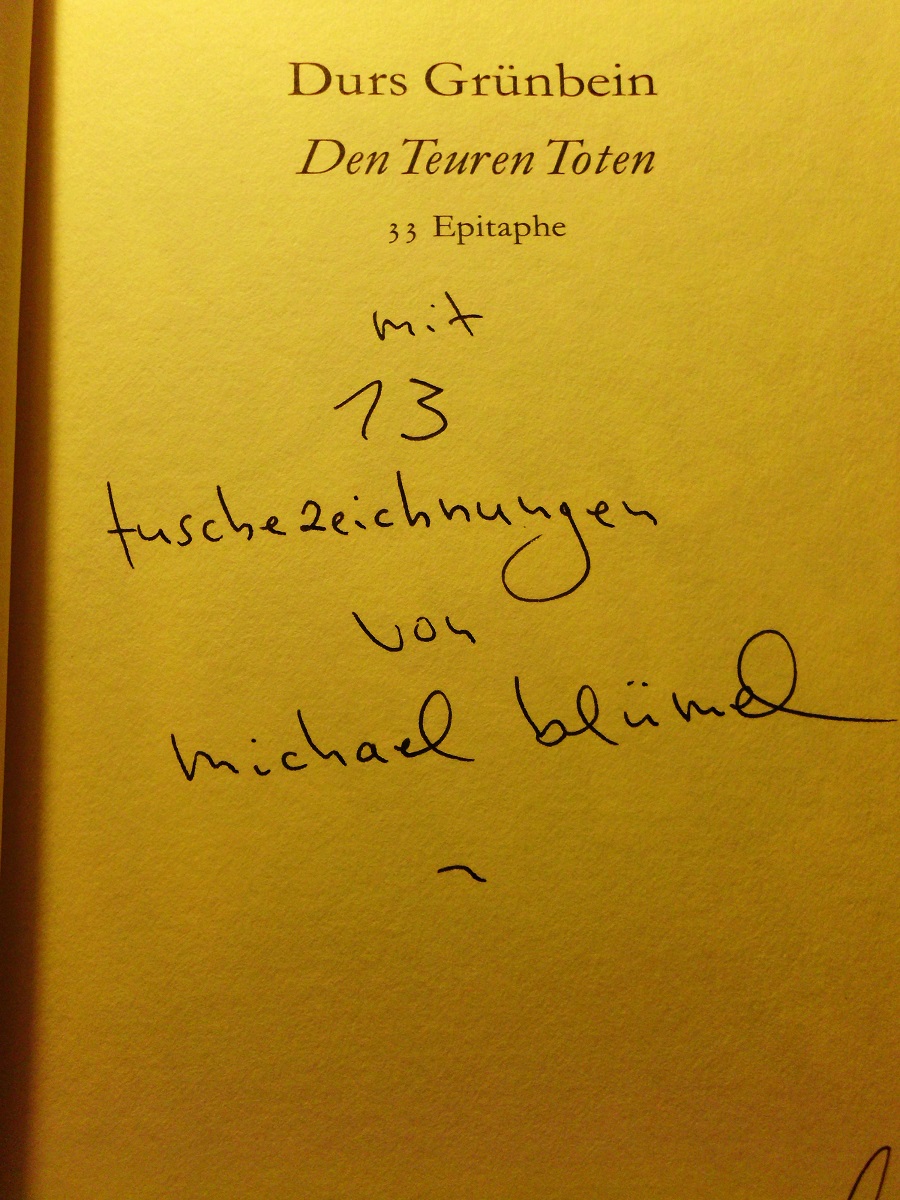 Durs Grünbein
Den Teuren Toten
33 Epitaphe
mit
13
tuschezeichnungen
von
michael blümel
~